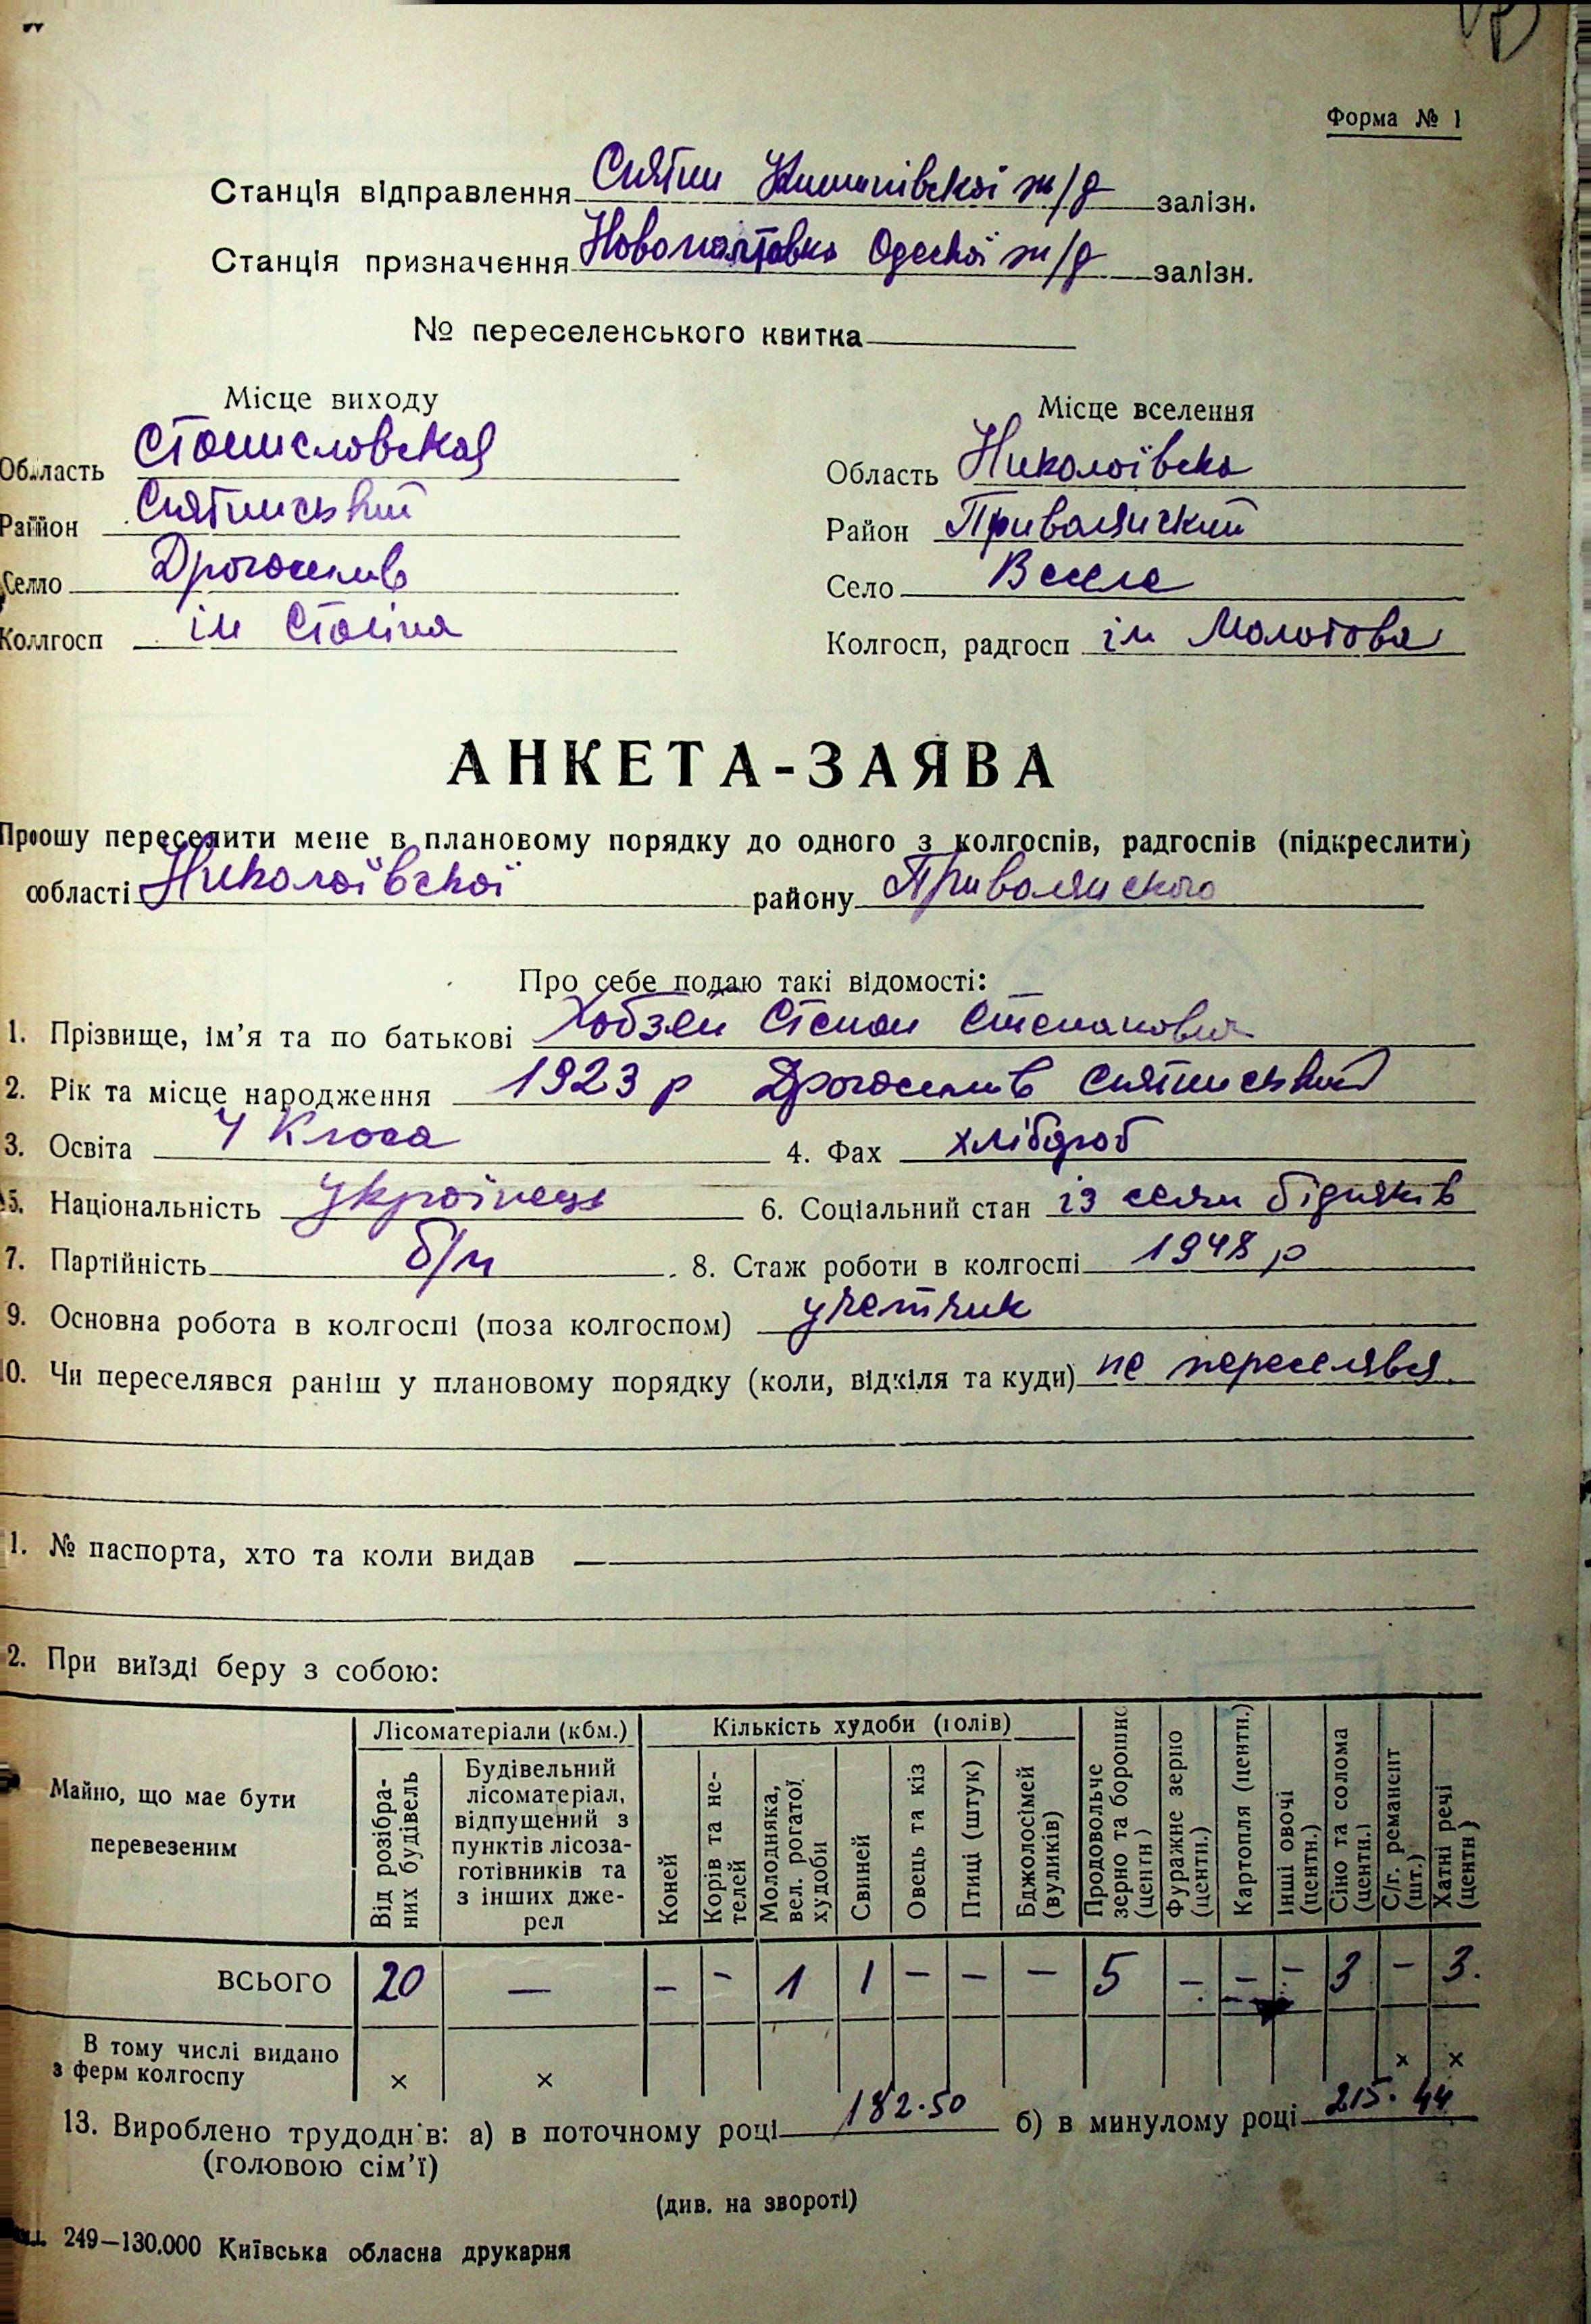 Форма № 1
Станція відправлення Снятин Кишинівской ж/д залізн.
Станція призначення Новополтовка Одеської ж/д залізн.
№ переселенського квитка
Місце виходу
Місце вселення
Область Станиславская
Область Николаївська
Район Снятинський
Район Привольнский
Село
Село Веселе
Колгосп ім Сталіна
Колгосп, радгосп ім Молотова
АНКЕТА-ЗАЯВА
Прошу переселити мене в плановому порядку до одного з колгоспів, радгоспів (підкреслити)
області Николаївської району Привольнского
Про себе подаю такі відомості:
1. Прізвище, ім'я та по батькові Степан Степанович
2. Рік та місце народження 1923 р Снятинський
3. Освіта 4 Класа 4. Фах хлібороб
5. Національність українець 6. Соціальний стан із селян бідняків
7. Партійність б/п 8. Стаж роботи в колгоспі 1948 р
9. Основна робота в колгоспі (поза колгоспом) учетчик
10. Чи переселявся раніш у плановому порядку (коли, відкіля та куди) не переселявся
1. № паспорта, хто та коли видав
2. При виїзді беру з собою:
Майно, що має бути перевезеним
Лісоматеріали (кбм.)
Кількість худоби (голів)
Від розібраних будівель
Будівельний лісоматеріал, відпущений з пунктів лісозаготівників та з інших джерел
Коней
Корів та нетелей
Молодняка, вел. рогатої худоби
Свиней
Овець та кіз
Птиці (штук)
Бджолосімей (вуликів)
Продовольче зерно та борошно (центн)
Фуражне зерно (центн.)
Картопля (центн.)
Інші овочі (центн.)
Сіно та солома (центн.)
С/г. реманент (шт.)
Хатні речі (центн)
ВСЬОГО 20 — – – 1 1 – – – 5 – – – 3 – 3.
В тому числі видано
з ферм колгоспу × × × ×
13. Вироблено трудоднів: а) в поточному році 182.50 б) в минулому році 215.44
(головою сім'ї)
(див. на звороті)
249—130.000 Київська обласна друкарня